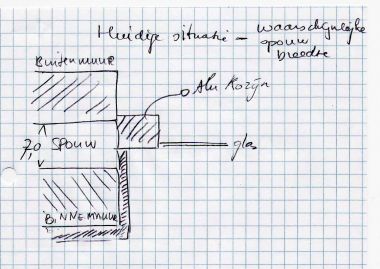 Huidige situatie - waarschijnlijke
spouw
breedte
BUITENMUUR
Alu Kozijn
7,0 SPOUW
glas
BINNENMUUR